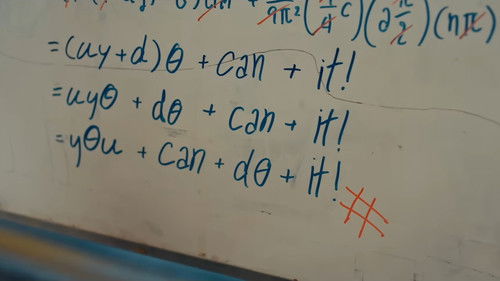 9π² (1/4 c)(2 π/2)(nπ)
=(uy+d)θ + can + it!
=uyθ + dθ + can + it!
=yθu + can + dθ + it! #